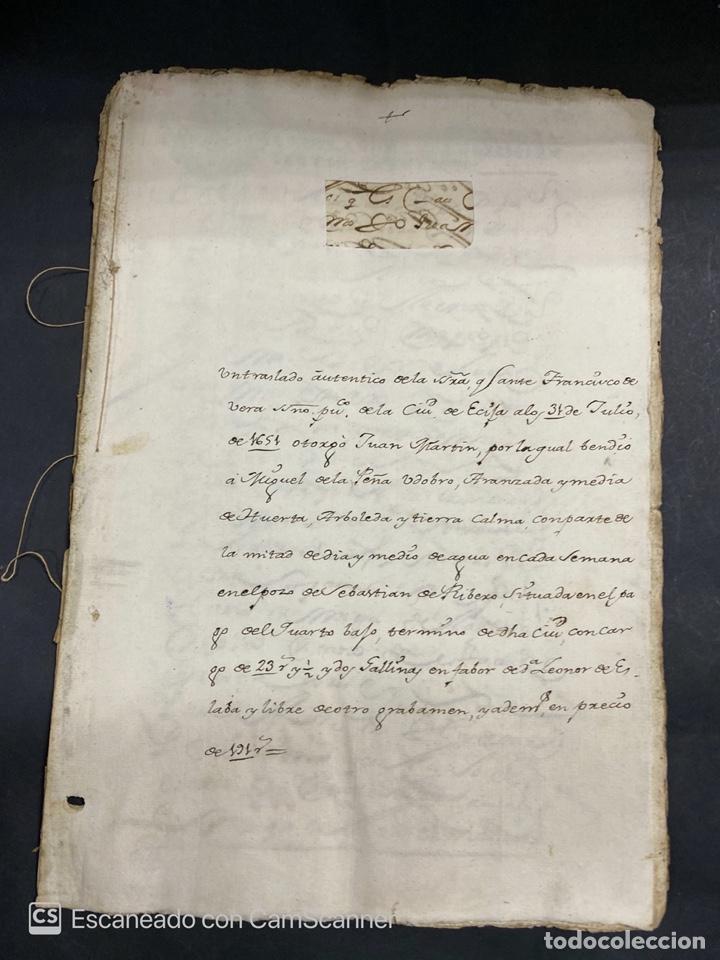 +
Un traslado autentico de la Ssra, q Sante Francisco de
vera Ssno. puco. de la Ciud. de Ecija a los 31 de Julio,
de 1651 otorgò Juan Martin, por la qual bendio
a Miguel de la Peña Vdobro, Aranzada y media
de Huerta, Arboleda y tierra Calma, con parte de
la mitad de dia y medio de agua en cada Semana
en el pozo de Sebastian de Ribero, Situada en el pa
go del Quarto bajo, termino de dha Ciud con car
go de 23 rs y 1/2 y dos Gallinas en fabor de da Leonor de Es-
laba y libre de otro grabamen, y ademas, en precio
de 191 rs =
CS Escaneado con CamScanner
todocoleccion